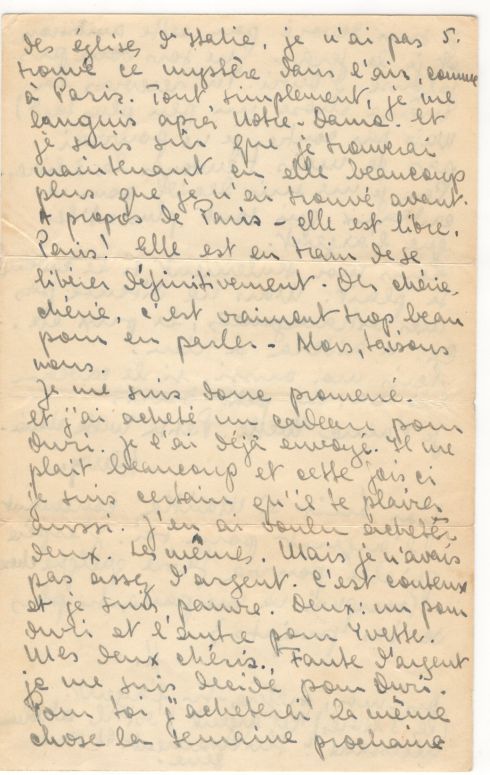 des églises d'Italie, je n'ai pas 5.
trouvé ce mystère dans l'air, comme
à Paris. Tout simplement, je me
languis après Notre-Dame. Et
je suis sûr que je trouverai
maintenant en elle beaucoup
plus que je n'ai trouvé avant.
A propos de Paris - elle est libre,
Paris! Elle est en train de se
libérer définitivement. Oh chérie,
chérie, c'est vraiment trop beau
pour en parler - Alors, taisons
nous.
Je me suis donc promené.
et j'ai acheté un cadeau pour
Ouri. Je l'ai déjà envoyé. Il me
plait beaucoup et cette fois ci
je suis certain qu'il te plaira
aussi. J'en ai voulu acheter
deux. Les mêmes. Mais je n'avais
pas assez d'argent. C'est couteux
et je suis pauvre. Deux: un pour
Ouri et l'autre pour Yvette.
Mes deux chéris. Faute d'argent
je me suis decidé pour Ouri.
Pour toi j'acheterai la même
chose la semaine prochaine